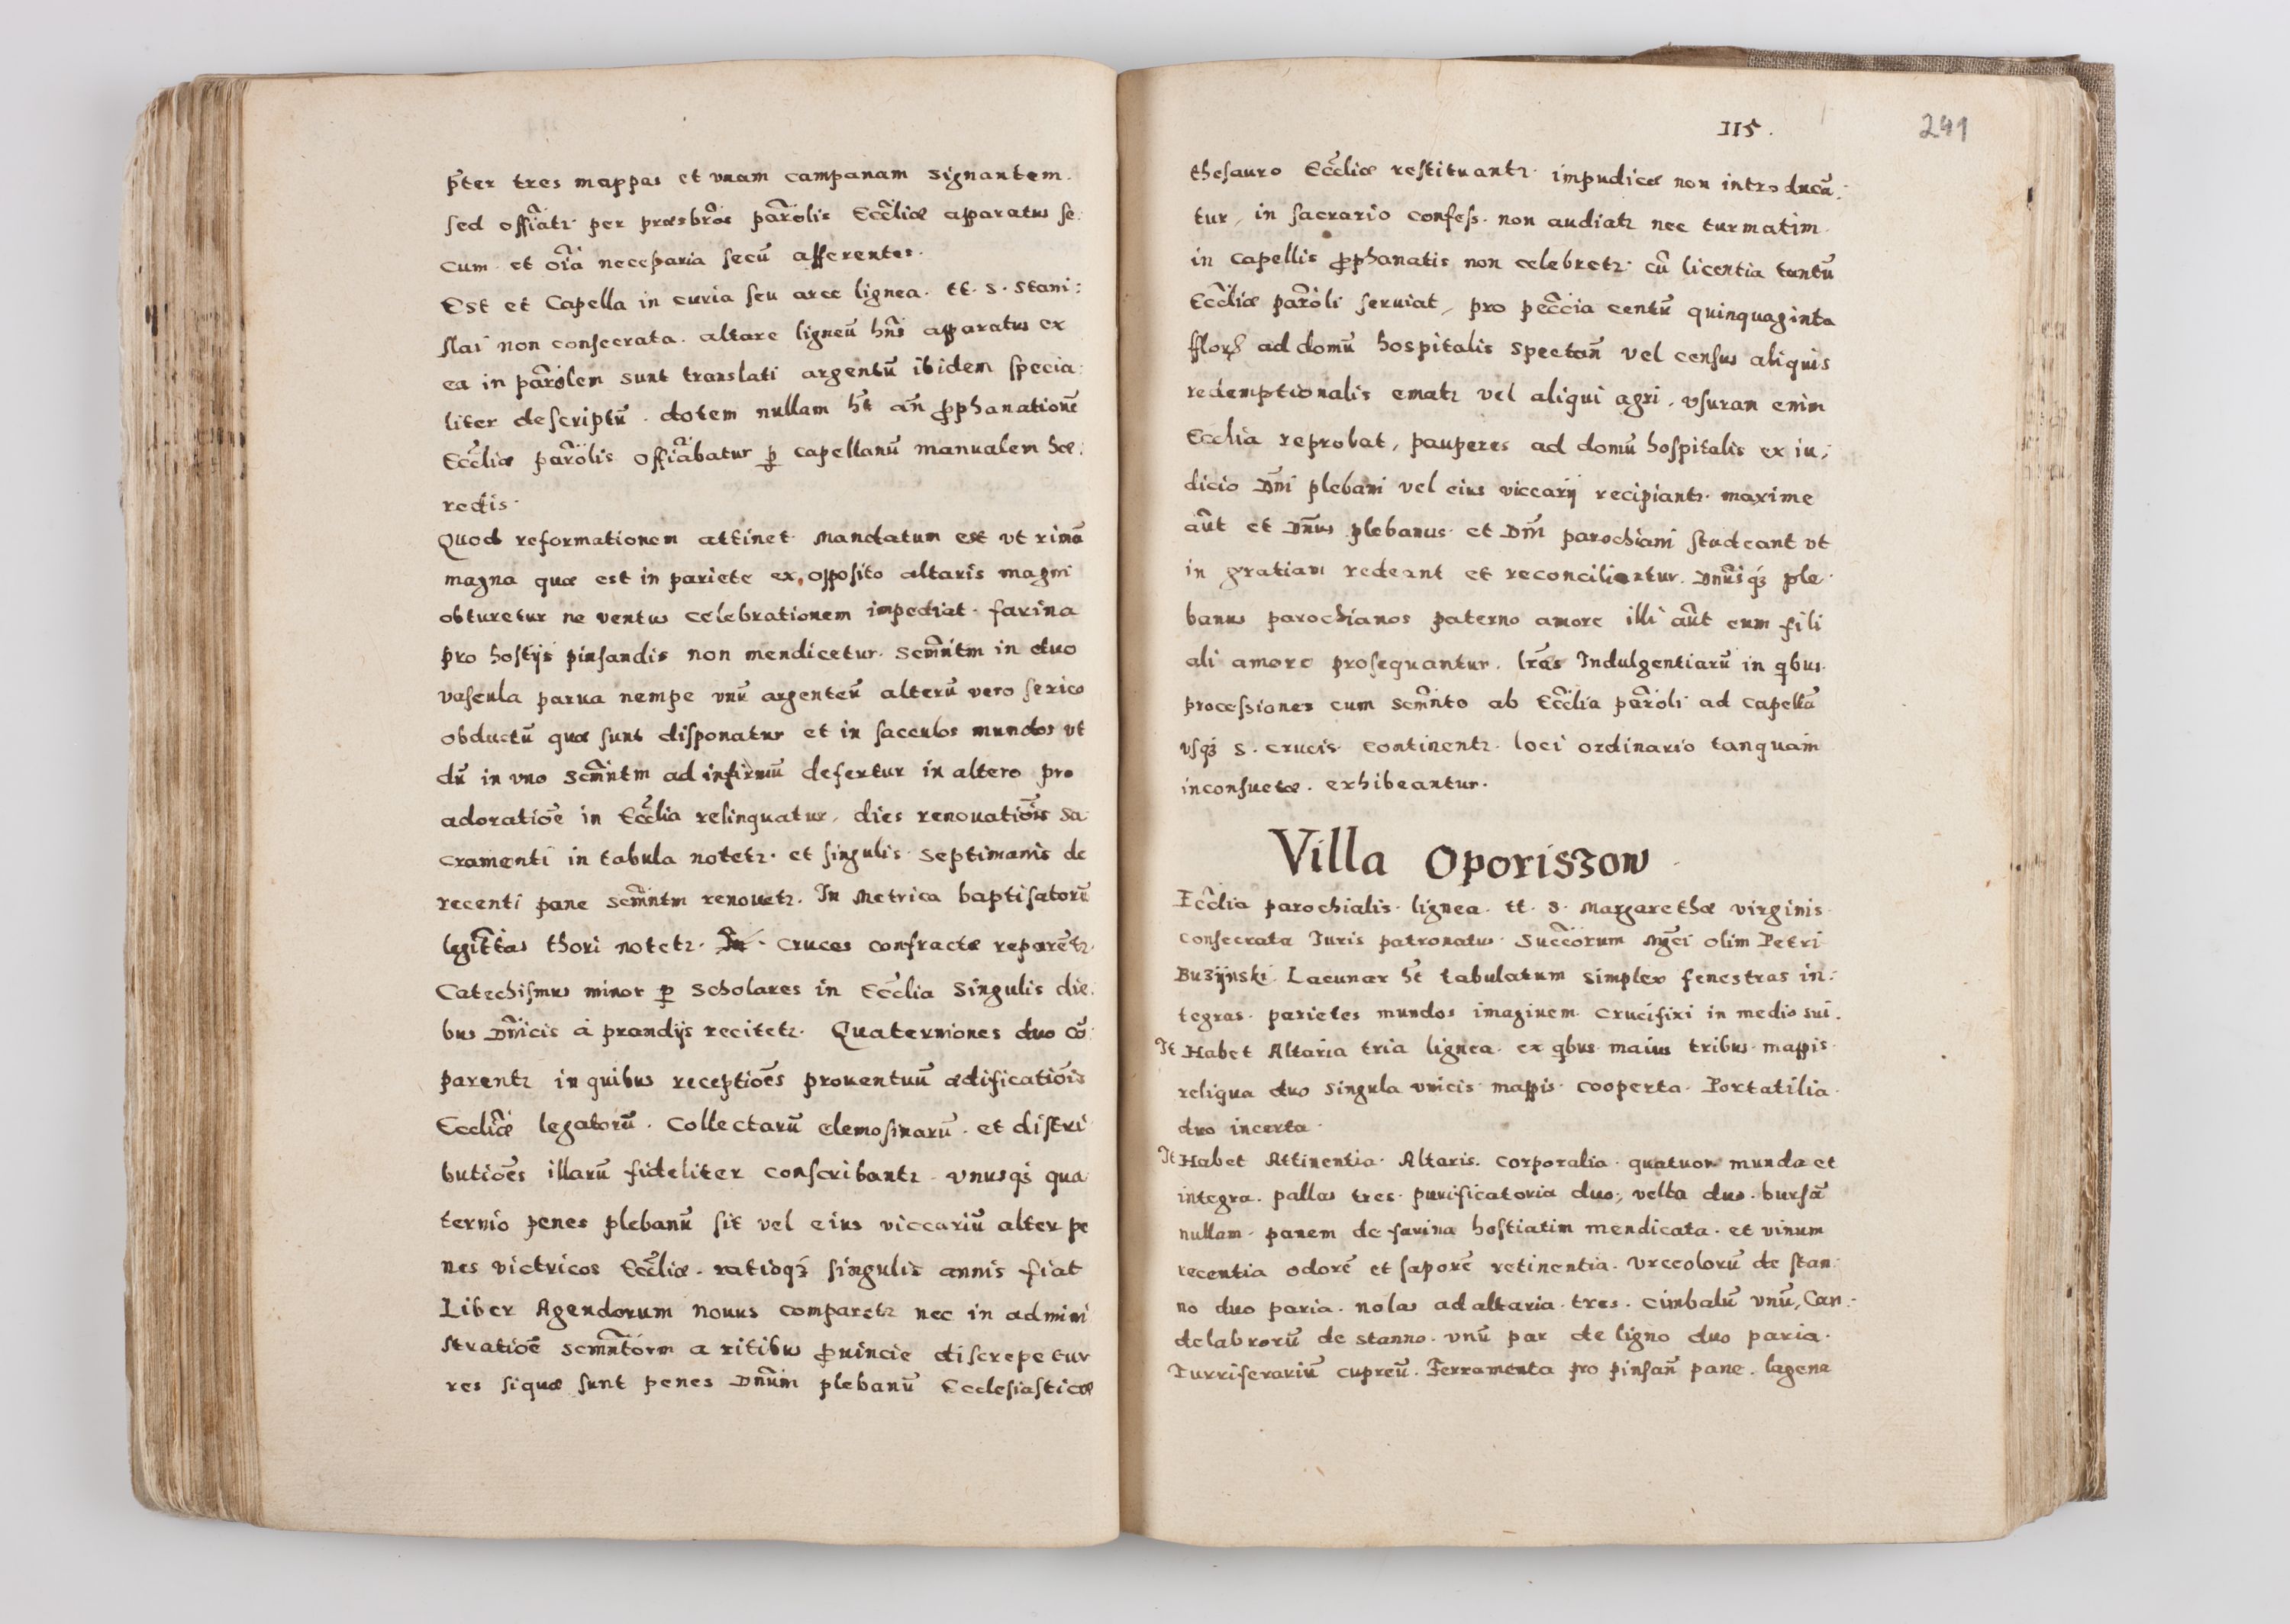 p̃ter tres mappas et vnam campanam signantem.
sed offiãtꝛ per præsbr̃os par̃olis Eccl̃iæ apparatus se:
cum et oĩa necessaria secũ afferentes.
Est et Capella in curia seu arce lignea. tt. S. Stani:
slai non consecrata. altare ligneũ hñs apparatus ex
ea in par̃olem sunt translati argentũ ibidem specia:
liter descriptũ. dotem nullam ht̃ añ ꝓphanationẽ
Eccl̃iæ par̃olis offiãbatur ꝑ capellanũ manualem hæ:
redis.
Quod reformationem attinet Mandatum est vt rimã
magna quæ est in pariete ex opposito altaris magni
obturetur ne ventus celebrationem impediat. farina
pro hostijs pinsandis non mendicetur. Scm̃ntm in duo
vascula parua nempe vnũ argenteũ alterũ vero serico
obductũ quæ sunt disponatur et in sacculos mundos vt
dũ in vno Scm̃ntm ad infirmũ defertur in altero pro
adoratiõe in Eccl̃ia relinquatur, dies renouatiõis Sa:
cramenti in tabula notetꝛ. et singulis septimanis de
recenti pane scm̃ntm renouetꝛ. In Metrica baptisatorũ
legitt̃as thori notetꝛ. In. cruces confractæ reparẽtꝛ.
Catechismus minor ꝑ Scholares in Eccl̃ia Singulis die:
bus Dñicis à prandijs recitetꝛ. Quaterniones duo cõ:
parentꝛ in quibus receptiões prouentuũ ædificatiõis
Eccl̃iæ legatorũ. Collectarũ elemosinarũ. et distri
butiões illarũ fideliter conscribantꝛ. vnusqꝫ qua
ternio penes plebanũ sit vel eius viccariũ alter pe
nes victricos Eccl̃iæ. ratioqꝫ singulis annis fiat
Liber Agendorum nouus comparetꝛ nec in admini
stratiõe scm̃ntorm a ritibus ꝓuincie discrepetur
res siquæ sunt penes Dñum plebanũ Ecclesiasticæ
115.
241
thesauro Eccl̃iæ restituantꝛ. impudicæ non introducã:
tur, in sacrario confess. non audiatꝛ nec turmatim.
in capellis ꝓphanatis non celebretꝛ. cũ licentia tantũ
Eccl̃iæ par̃oli seruiat, pro pecc̃ia centũ quinquaginta
fflorꝭ ad domũ hospitalis spectañ vel census aliquis
redemptionalis ematꝛ vel aliqui agri, vsuram enim
Ecclia reprobat, pauperes ad domũ hospitalis ex iu:
dicio Dñi plebani vel eius viccarij recipiantꝛ. maxime
aũt et Dñus plebanus et Dñi parochiani studeant vt
in gratiam redeant et reconcilientur. Dnũsqꝫ ple:
banus parochianos paterno amore illi aũt eum fili
ali amore prosequantur. lr̃as Indulgentiarũ in qbus
processiones cum scm̃nto ab Eccl̃ia par̃oli ad capellã
vsqꝫ S. Crucis continentꝛ. loci ordinario tanquam
inconsuetæ. exhibeantur.
Villa Oporiszow
Eccl̃ia parochialis. lignea. tt. S. Margarethæ virginis
consecrata Iuris patronatus. Succ̃orum Mg̃ci olim Petri
Buzÿnski. Lacunar ht̃ tabulatum simplex fenestras in:
tegras. parietes mundos imaginem Crucifixi in medio sui.
It Habet Altaria tria lignea. ex qbus maius tribus mappis
reliqua duo singula vnicis mappis cooperta. Portatilia.
duo incerta.
It Habet Attinentia Altaris. corporalia quatuor munda et
integra. pallas tres. purificatoria duo, velta duo. bursã
nullam. panem de farina hostiatim mendicata. et vinum
recentia odorẽ et saporẽ retinentia. Vrceolorũ de stan:
no duo paria. nolas ad altaria tres. cimbalũ vnũ, Can:
delabrorũ de stanno. vnũ par de ligno duo paria.
Turriferariũ cupreũ. Ferramenta pro pinsañ pane. lagena